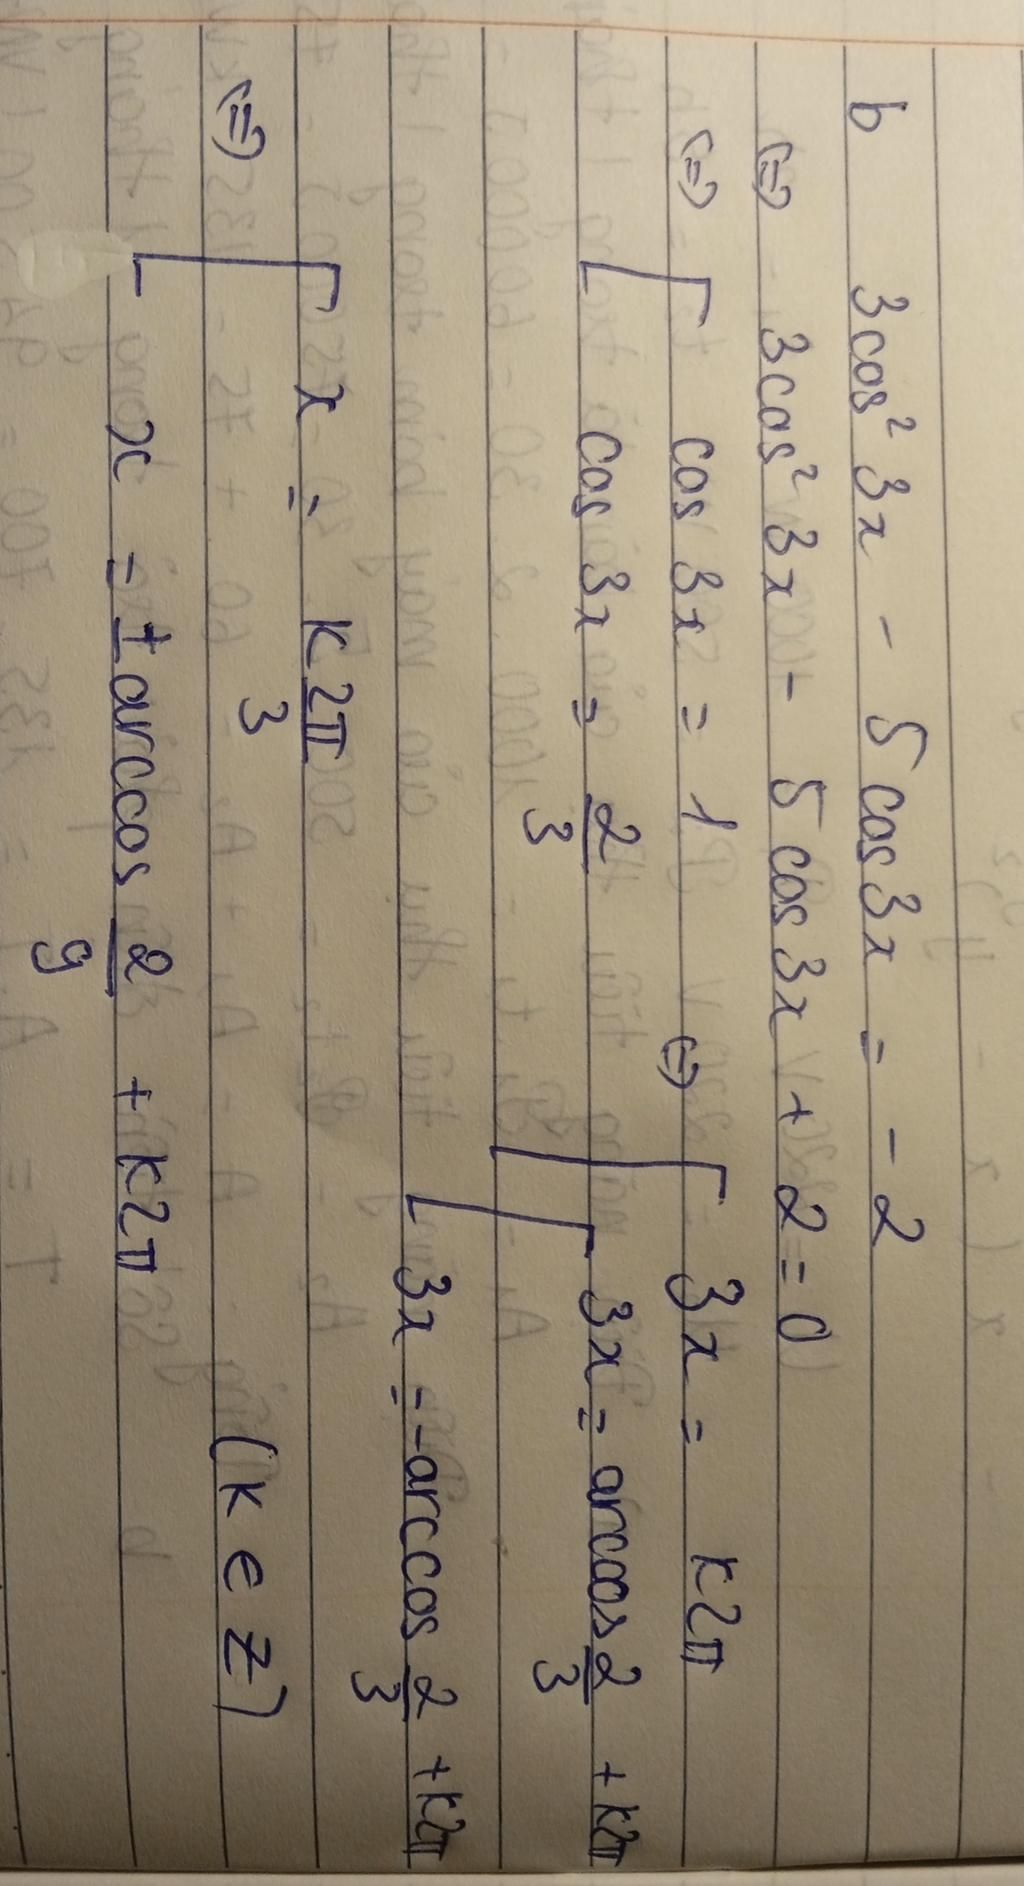 b 3cos² 3x - 5cos3x = -2
(=) 3cos² 3x - 5cos3x + 2 = 0
(=) [ cos 3x = 1 (=) [ 3x = k2π
[ cos 3x = 2/3 [ 3x = arccos 2/3 + k2π
[ 3x = -arccos 2/3 + k2π
(=) [ x = k2π/3 (k ∈ Z)
[ x = ± arccos 2/9 + k2π